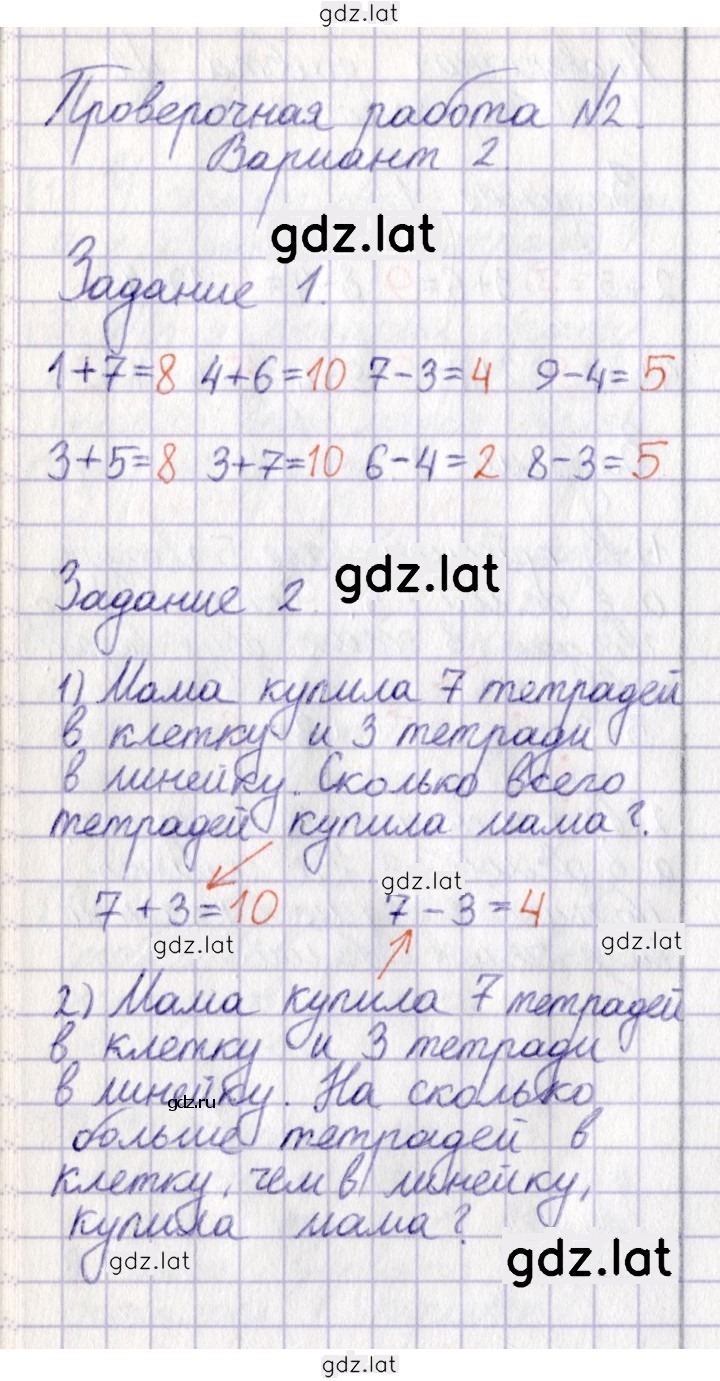 gdz.lat
Проверочная работа №2.
Вариант 2.
gdz.lat
Задание 1.
1+7=8 4+6=10 7-3=4 9-4=5
3+5=8 3+7=10 6-4=2 8-3=5
gdz.lat
Задание 2.
1) Мама купила 7 тетрадей
в клетку и 3 тетради
в линейку. Сколько всего
тетрадей купила мама?.
gdz.lat
7+3=10 7-3=4
gdz.lat gdz.lat
2) Мама купила 7 тетрадей
в клетку и 3 тетради
в линейку. На сколько
gdz.ru
больше тетрадей в
клетку, чем в линейку,
купила мама?
gdz.lat gdz.lat
gdz.lat